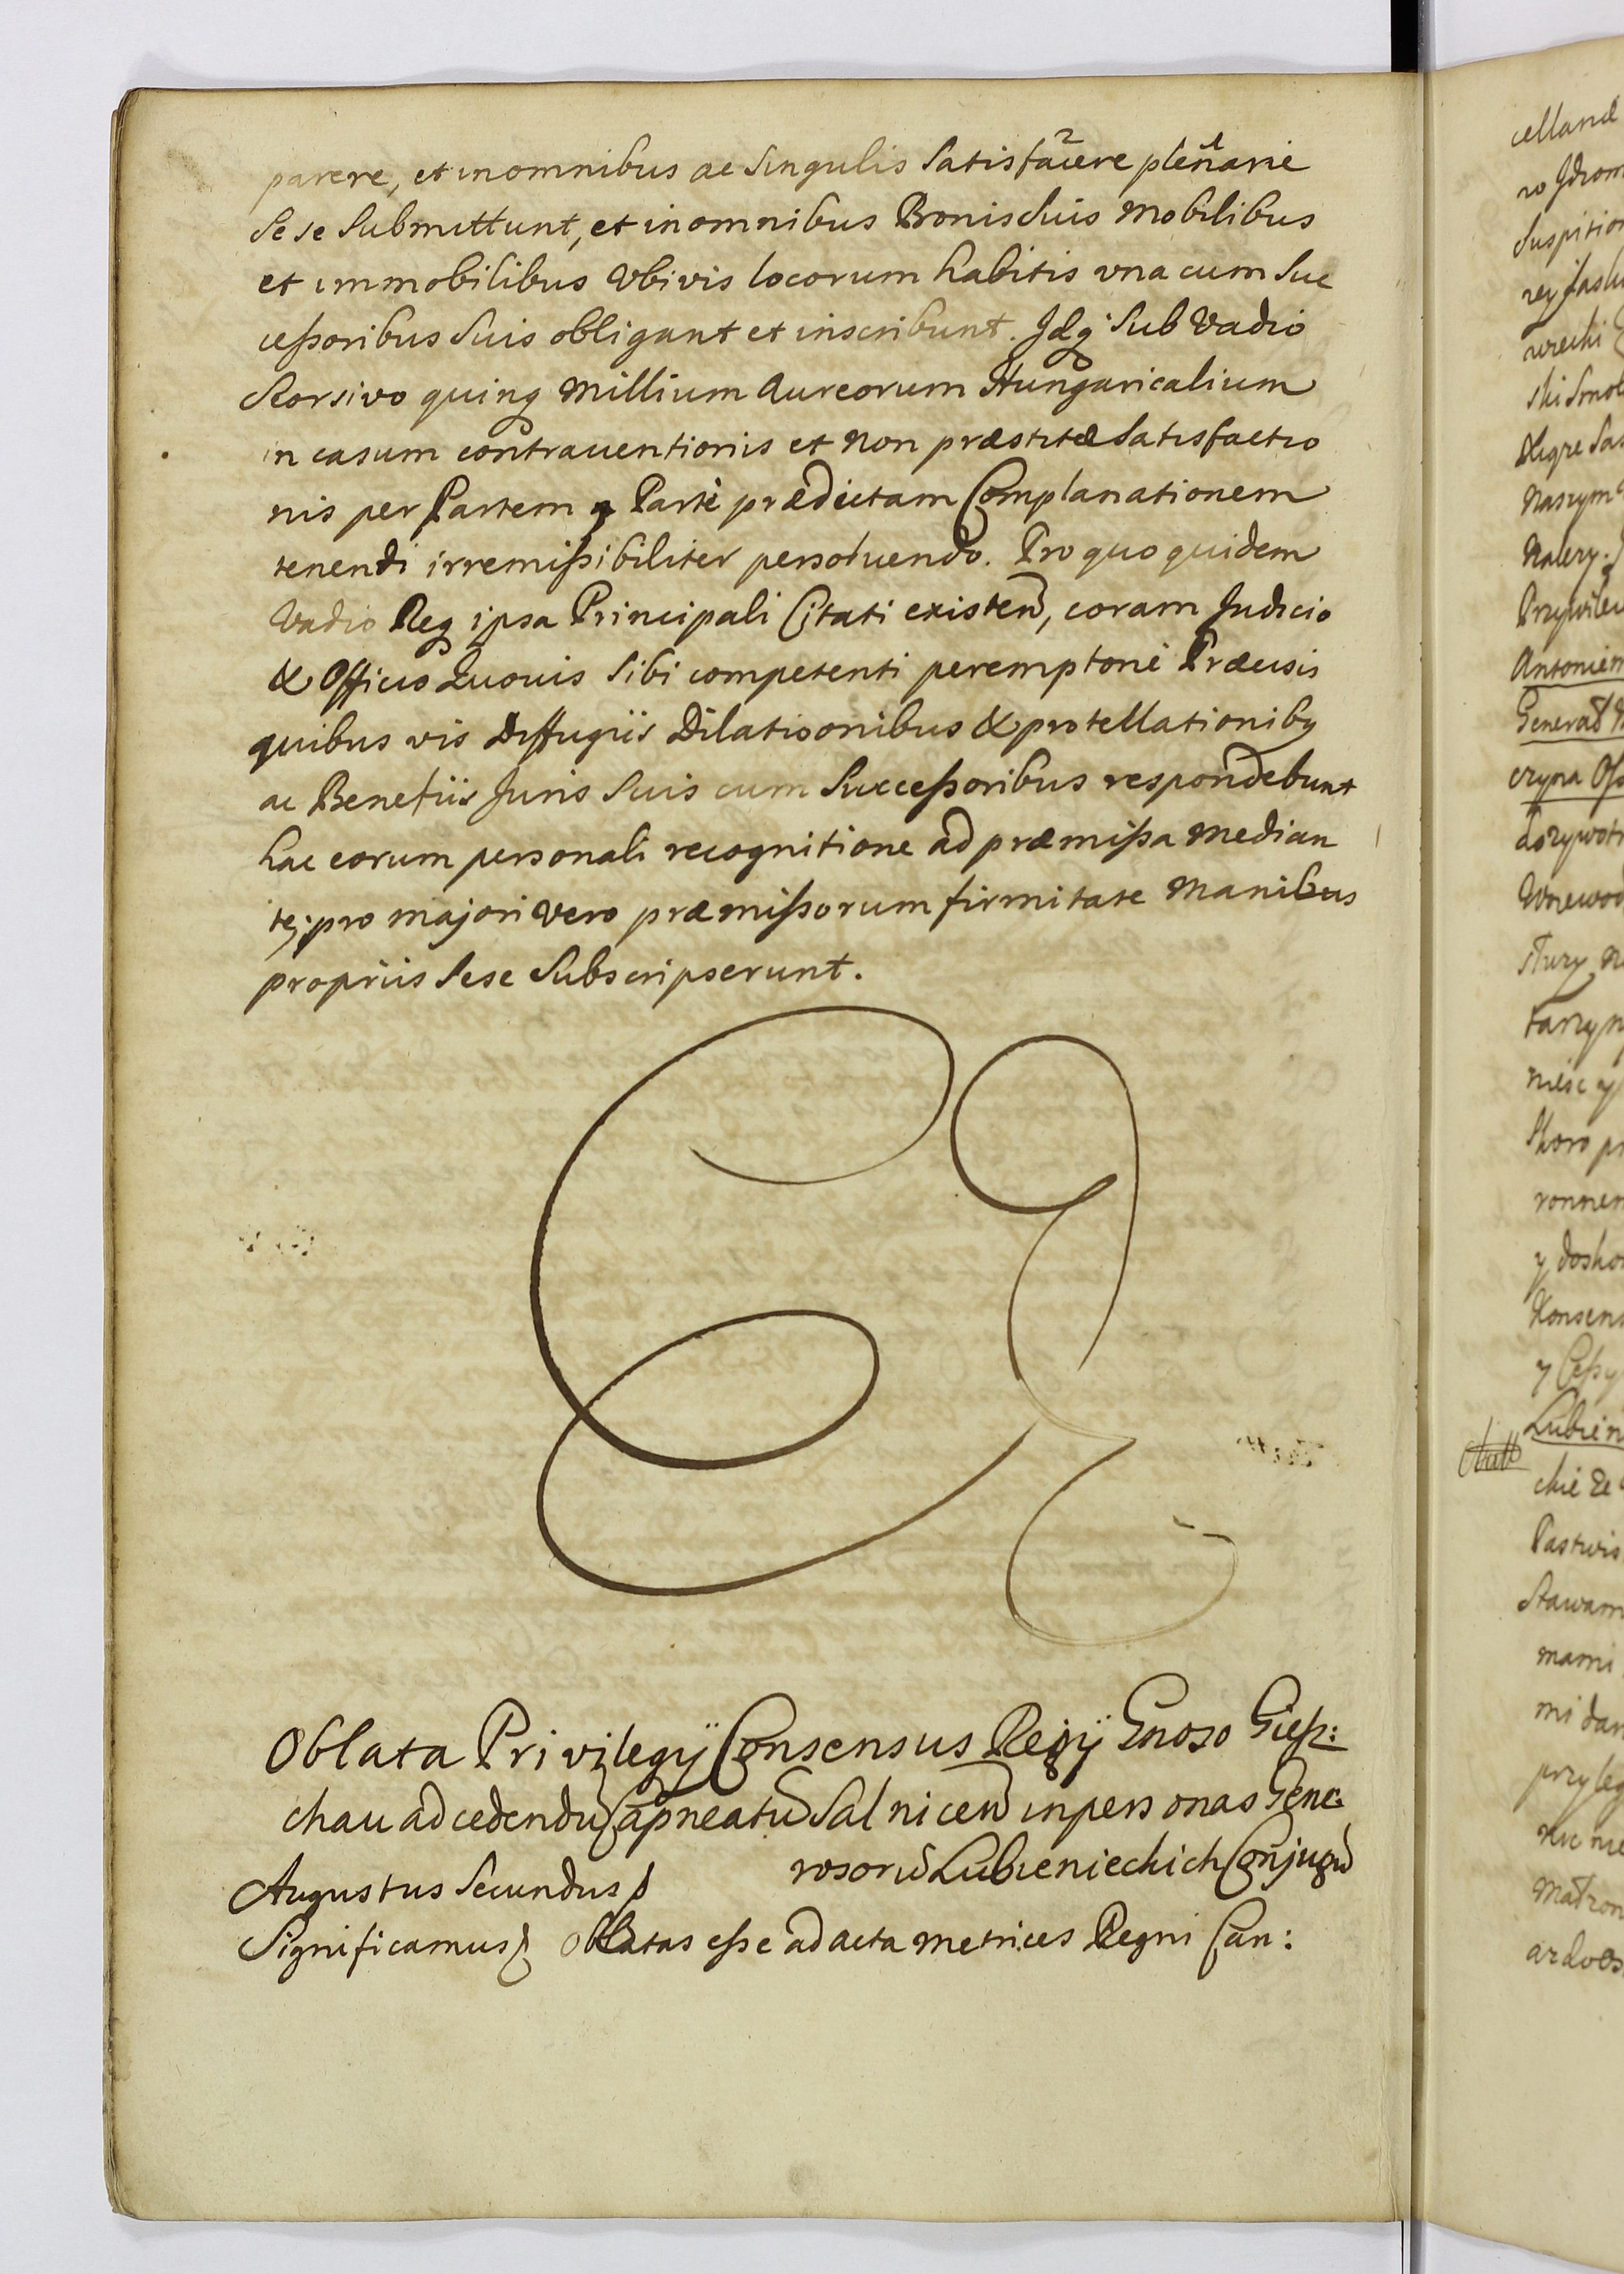 parere, et in omnibus ac Singulis Satisfacere plenarie
Se se Submittunt, et in omnibus Bonis Suis Mobilibus
et immobilibus Vbivis locorum habitis vna cum Suc
cessoribus Suis obligant et inscribunt. Idq Sub Vadio
Rorsivo quinq Millium Aureorum Hungaricalium
in casum contrauentionis et non præstitæ Satisfactio
nis per Partem Parti prædictam Complanationem
tenendi irremissibiliter persoluendo. Pro quo quidem
Vadio Req ipsa Principali Citati existen, coram Judicio
& Officio Quouis Sibi competenti peremptorie Præcisis
quibus vis Diffugiis Dilatioonibus & protellationibq
ac Benefiis Juris Suis cum Successoribus respondebunt
hac eorum personali recognitione ad præmissa median
te; pro majori vero præmissorum firmitate Manibus
propriis Sese Subscripserunt.
Oblata Privilegÿ Consensus Regÿ Gnoso Giesz:
chau ad cedendu Capneatu Salnicen in personas Gene:
rosoru Lubienieckich Conjugu
Augustus Secundus
Significamus Oblatas esse ad acta metrices Regni Can:
celland
Suspition
Naszym
Antoniem
Generad
Konsens
Lubien
chie Ze
Pastwis
Stawam
mami
mi dan
przyleg
Matron